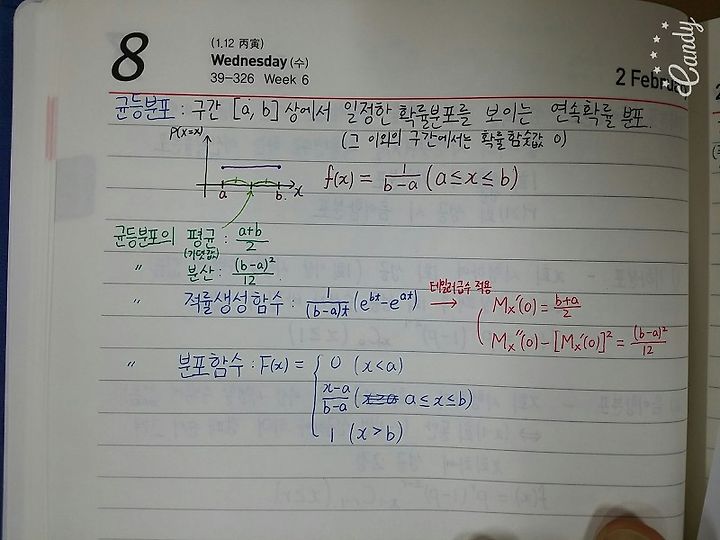 8
(1.12 丙寅)
Wednesday (수)
39-326 Week 6
2 Februa
Candy
균등분포 : 구간 [a, b] 상에서 일정한 확률분포를 보이는 연속확률 분포.
(그 이외의 구간에서는 확률 함숫값 0)
P(X=x)
a b x
f(x) = 1/(b-a) (a≤x≤b)
균등분포의 평균 : (a+b)/2
(기댓값)
" 분산 : (b-a)²/12
" 적률생성함수 : 1/((b-a)t) (e^bt - e^at) 테일러급수 적용 → Mx'(0) = (b+a)/2
Mx''(0) - [Mx'(0)]² = (b-a)²/12
" 분포함수 : F(x) = { 0 (x<a)
(x-a)/(b-a) (a≤x≤b)
1 (x>b)